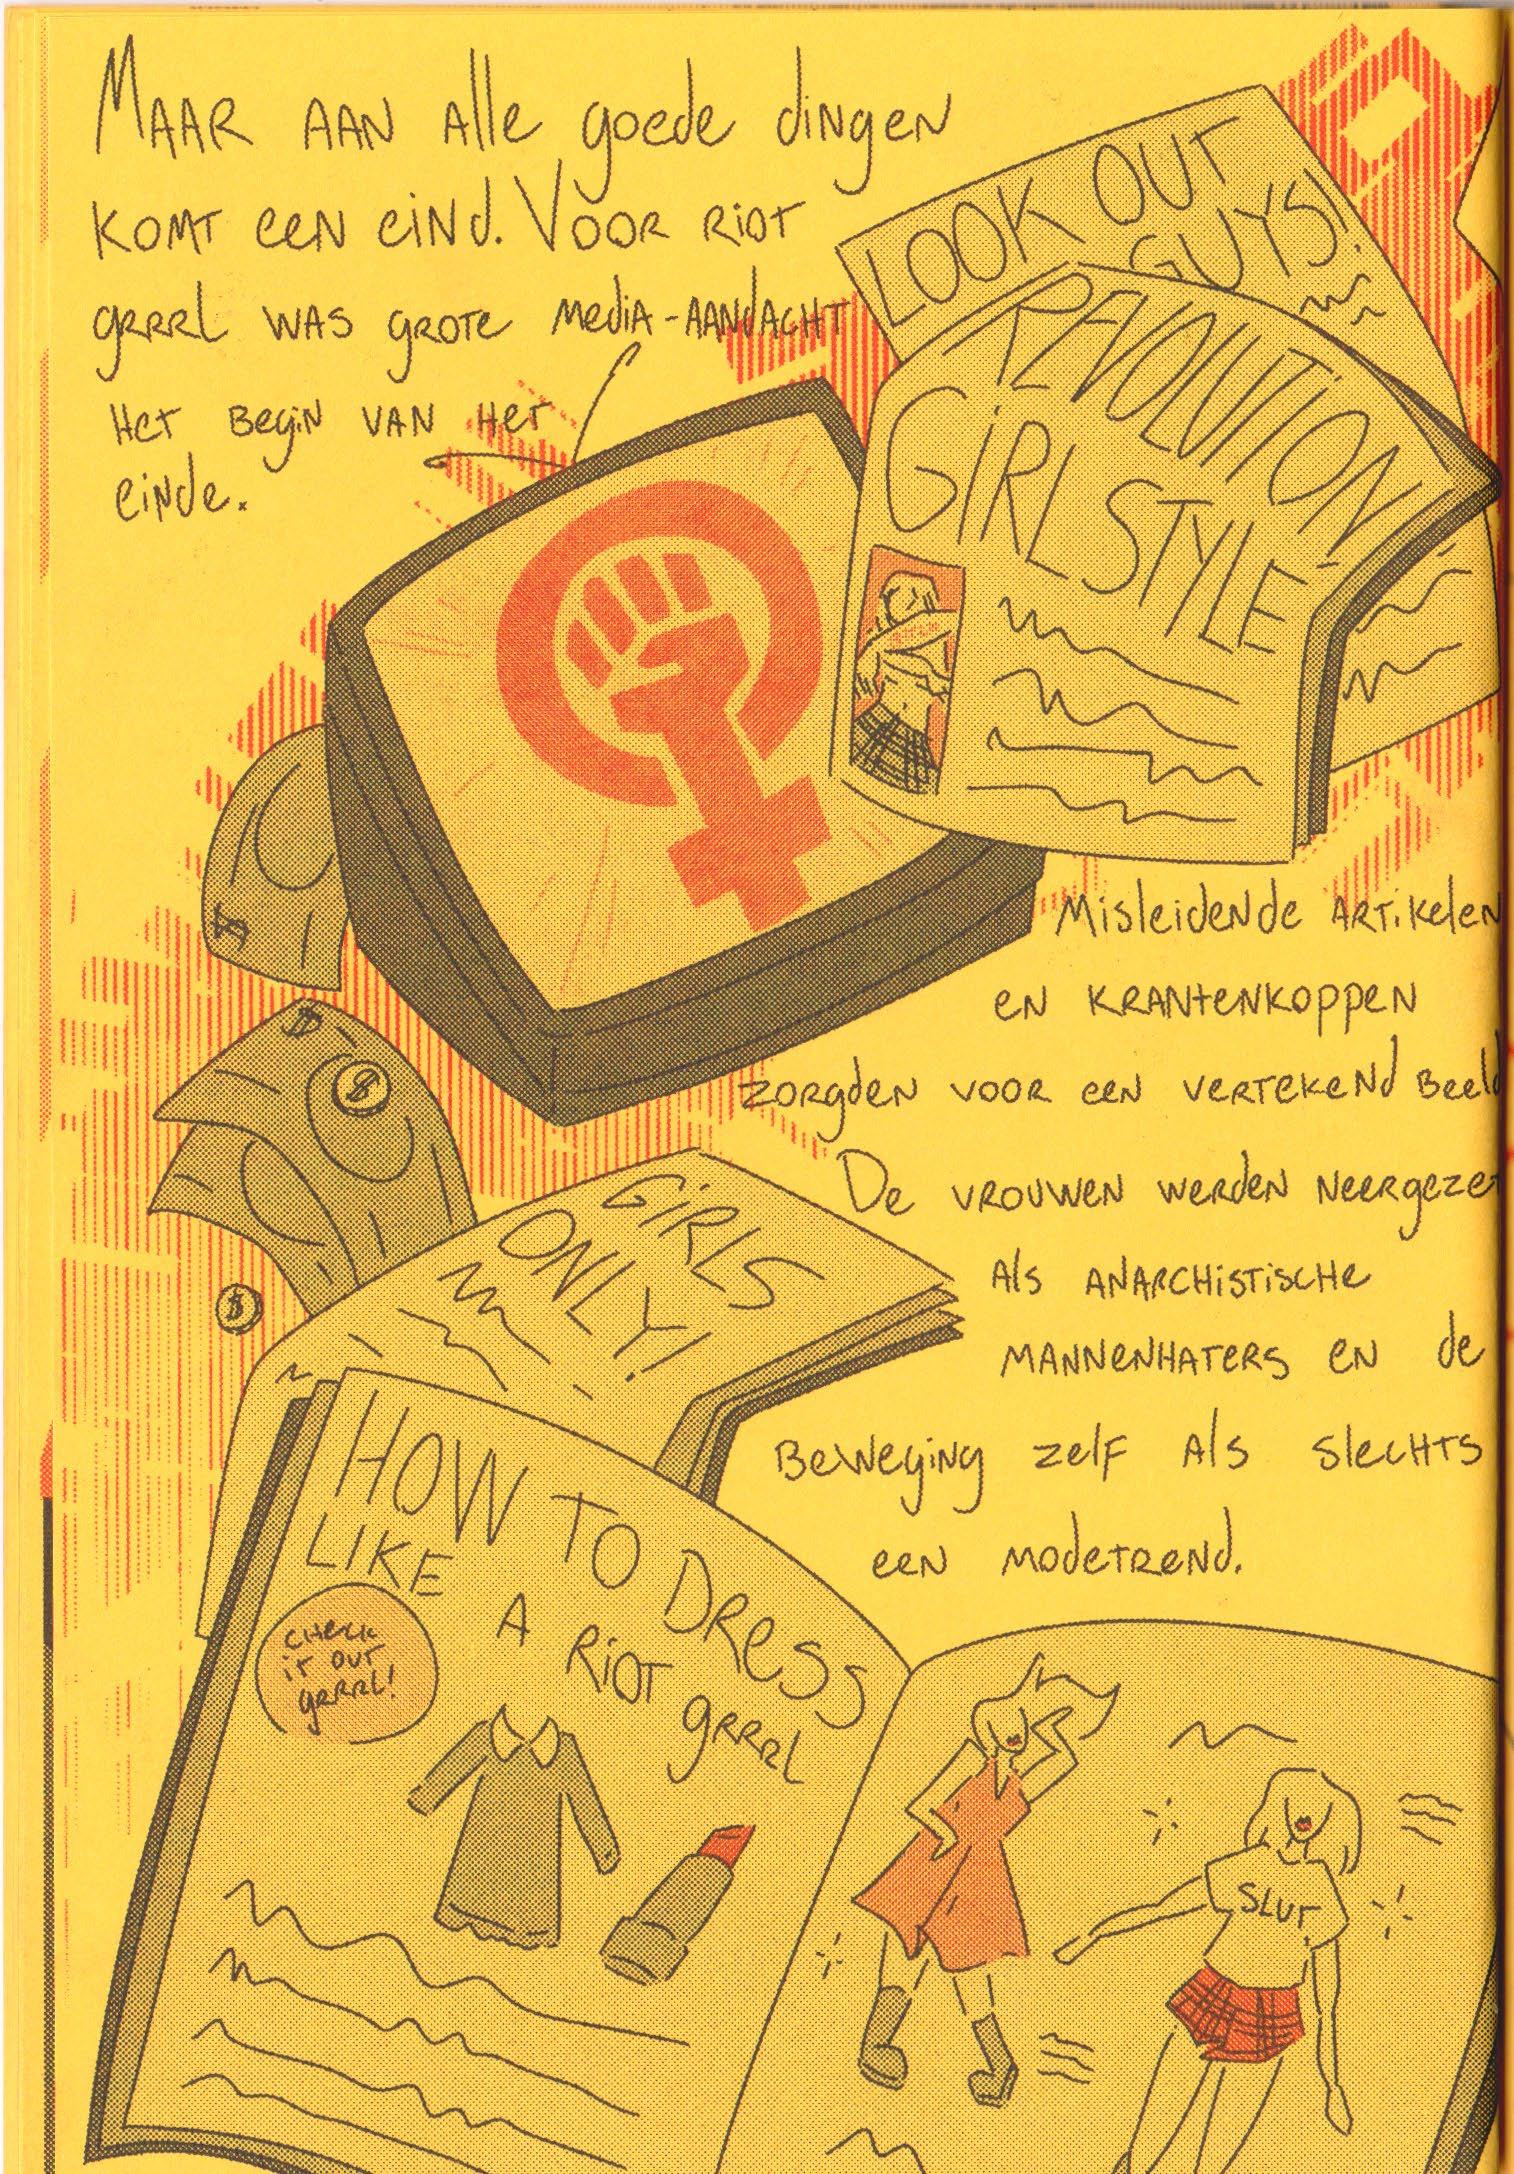 MAAR AAN Alle goede dingen
KOMT een eind. VOOR RIOT
GRRRL WAS GROTE Media-AANDACHT
Het Begin VAN Het
einde.
LOOK OUT
GUYS!
REVOLUTION
GIRL STYLE
Misleidende ARTikelen
en KRANtenkoppen
zorgden voor een vertekend Beeld
De vrouwen werden Neergezet
Als ANARCHistiscHe
MANNENHATERS en de
Beweging zelf Als slecHts
een modetrend.
GIRLS
ONLY!
HOW TO DRess
LIKE A RioT grrrl
CHeck
it out
grrrl!
SLUT